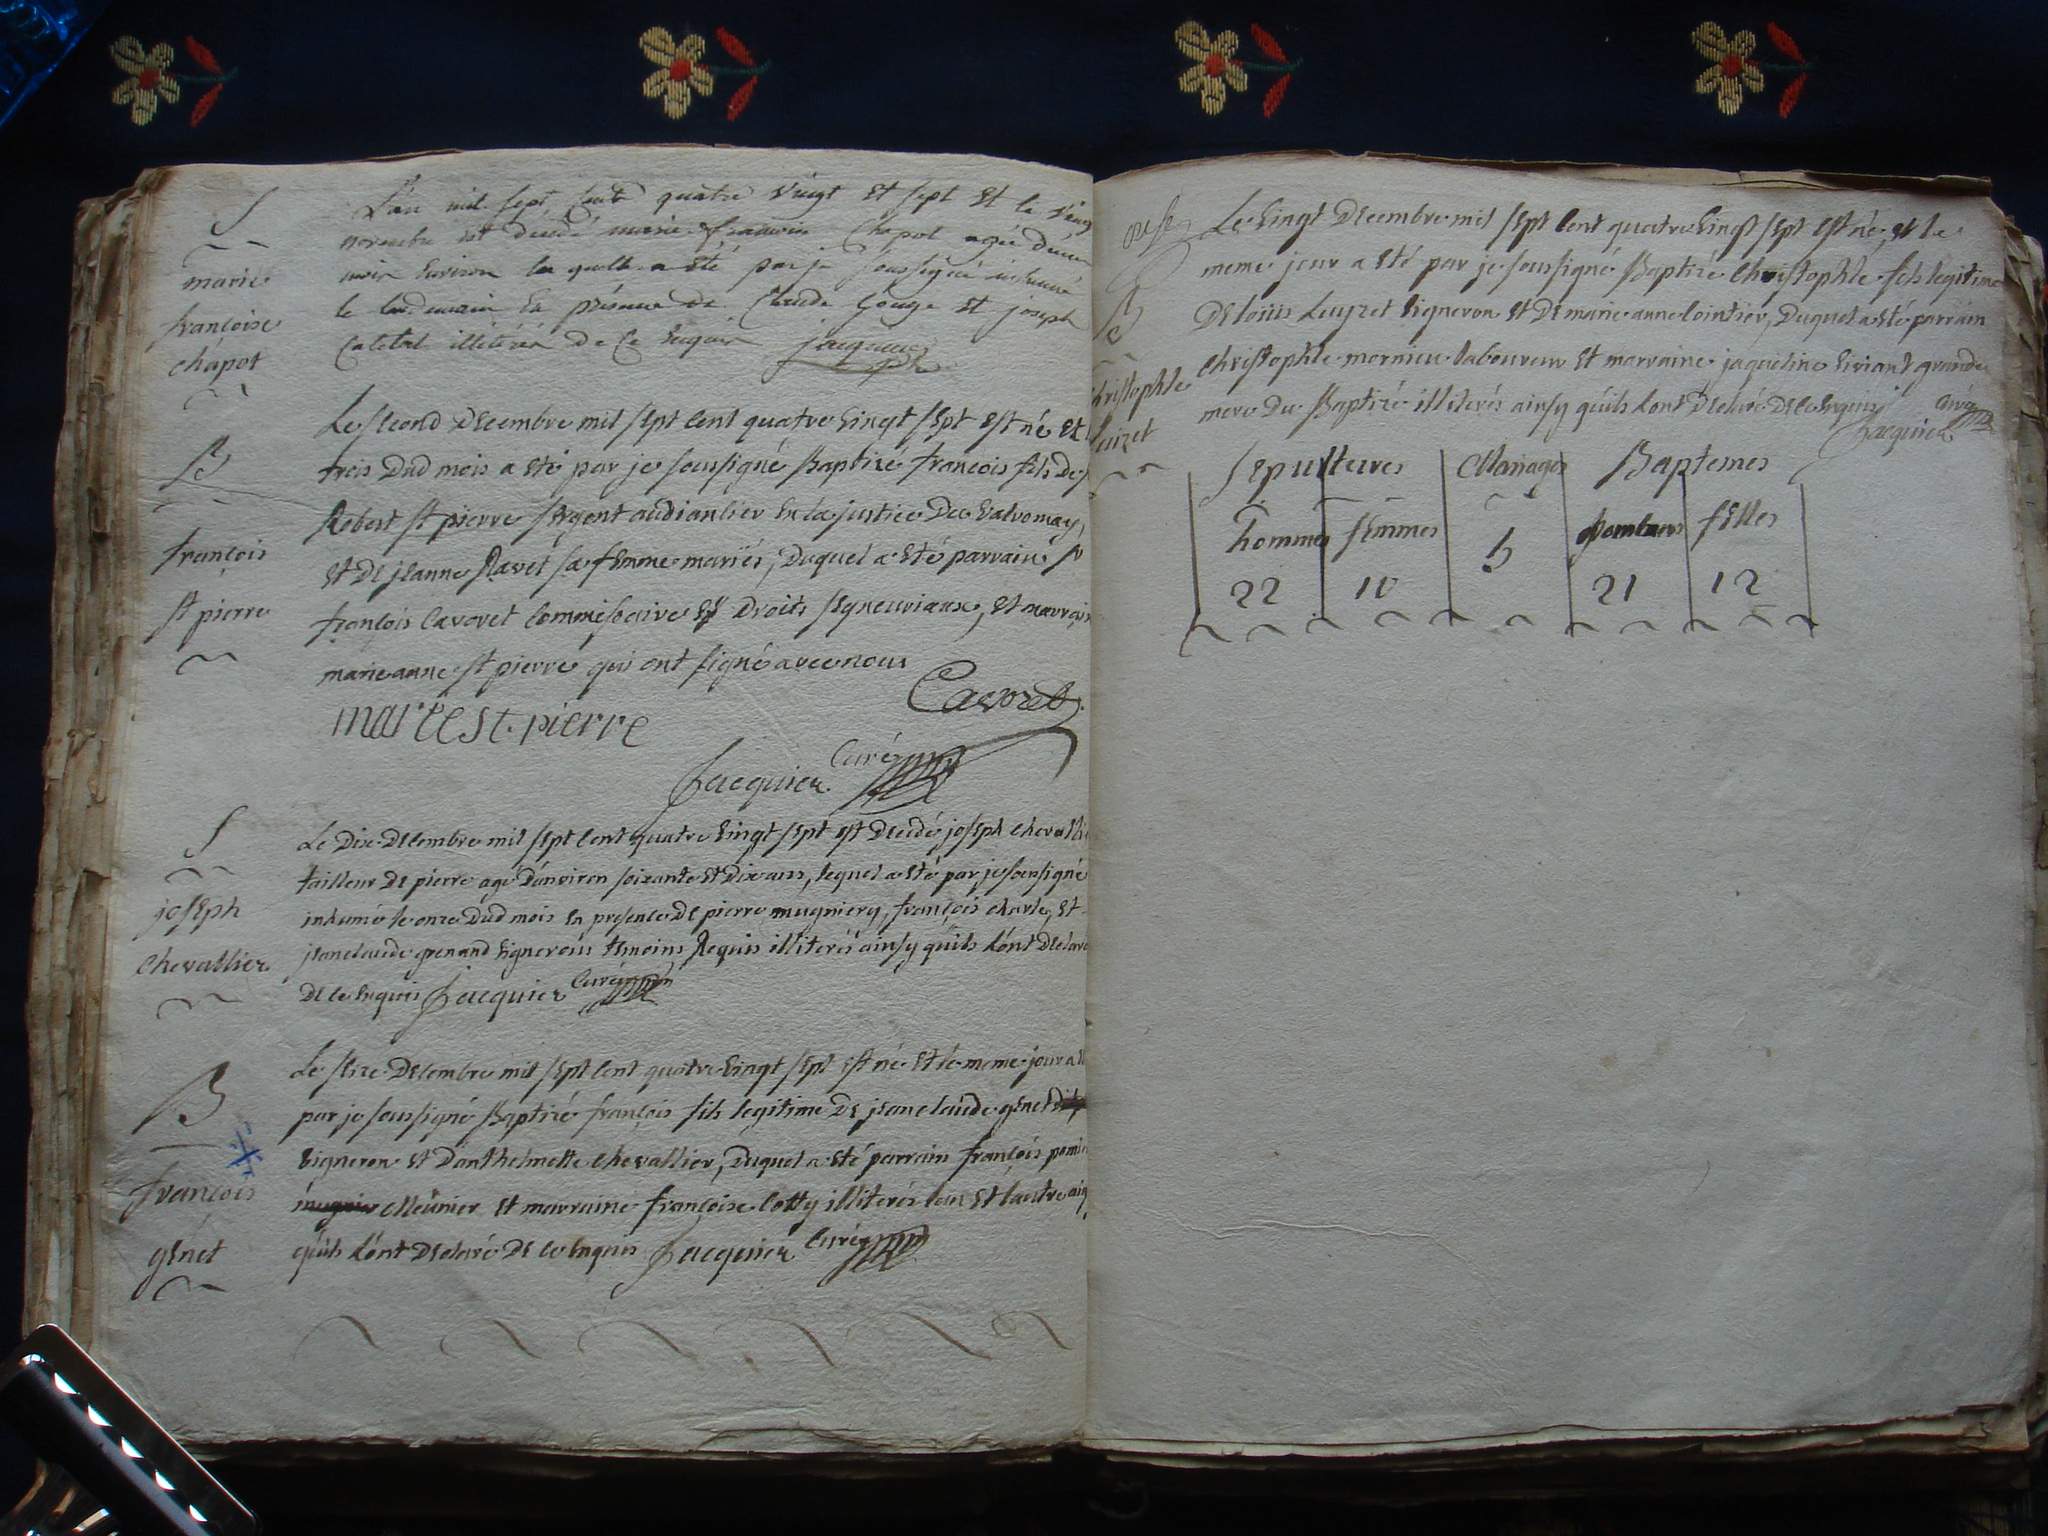 S
marie
françoise
chapot
L'an mil sept cent quatre vingt et sept et le vingt
novembre est décédé marie françoise Chapot agée d'un
mois environ la quelle a été par je soussigné inhumé
le lendemain en présence de Claude Gouge et joseph
Catelal illitérés de ce enquis jacquier
B
françois
st pierre
Le second Decembre mil sept cent quatre vingt sept est né et
trois Dud mois a eté par je soussigné Baptizé françois fils de
Robert st pierre sergent audiantier en la justice Du valromay,
et De jeanne Ravet sa femme mariés, Duquel a eté parrain
françois Cavoret Commissaire es Droits segneuriaux, et marrain
marie anne st pierre qui ont signé avec nous
Cavoret
marie St. pierre
Jacquier Curé
S
joseph
chevallier
Le Dix Decembre mil sept cent quatre vingt sept est Decédé joseph chevallie
tailleur De pierre agé D'anviron soixante et Dix ans, lequel a eté par je soussigné
inhumé le onze Dud mois en presence De pierre mugniery, françois charle, et
jean claude grenand vignerons temoins Requis illiterés ainsy quils L'ont Declaré
De ce enquis Jacquier Curé
B
françois
genet
Le seize Decembre mil sept cent quatre vingt sept est né et le meme jour a
par je soussigné Baptizé françois fils legitime De jean claude genet
vigneron et D'anthelmette chevallier, Duquel a eté parrain françois
Meûnier et marraine françoise Cotty illiterés l'un et l'autre
quils L'ont Declaré De ce enquis Jacquier Curé
B
christophle
Luizet
Le vingt Decembre mil sept cent quatre vingt sept est né et le
meme jour a eté par je soussigné Baptizé christophle fils legitime
De loüis Luyzet vigneron et De marie anne Cointier, Duquel a eté parrain
christophle mornieu laboureur et marraine jaqueline viviant grande
mere Du Baptizé illiterés ainsy quils L'ont Declaré De ce enquis
Jacquier Curé
Sepultures Mariages Baptemes
hommes femmes 5 filles
22 10 21 12